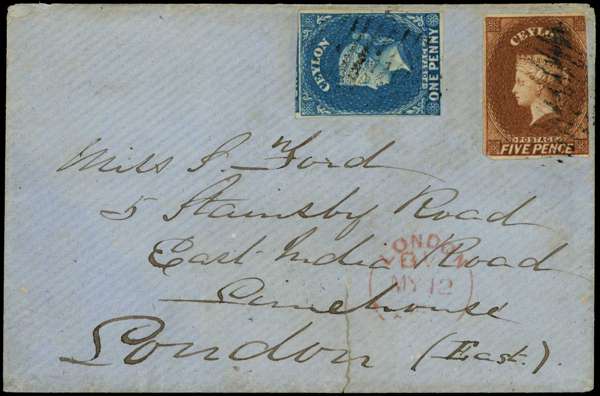 CEYLON
POSTAGE
ONE PENNY
CEYLON
POSTAGE
FIVE PENCE
Miss J. Ford
5 Stainsby Road
East India Road
Limehouse
London (East.)
LONDON
MY 12